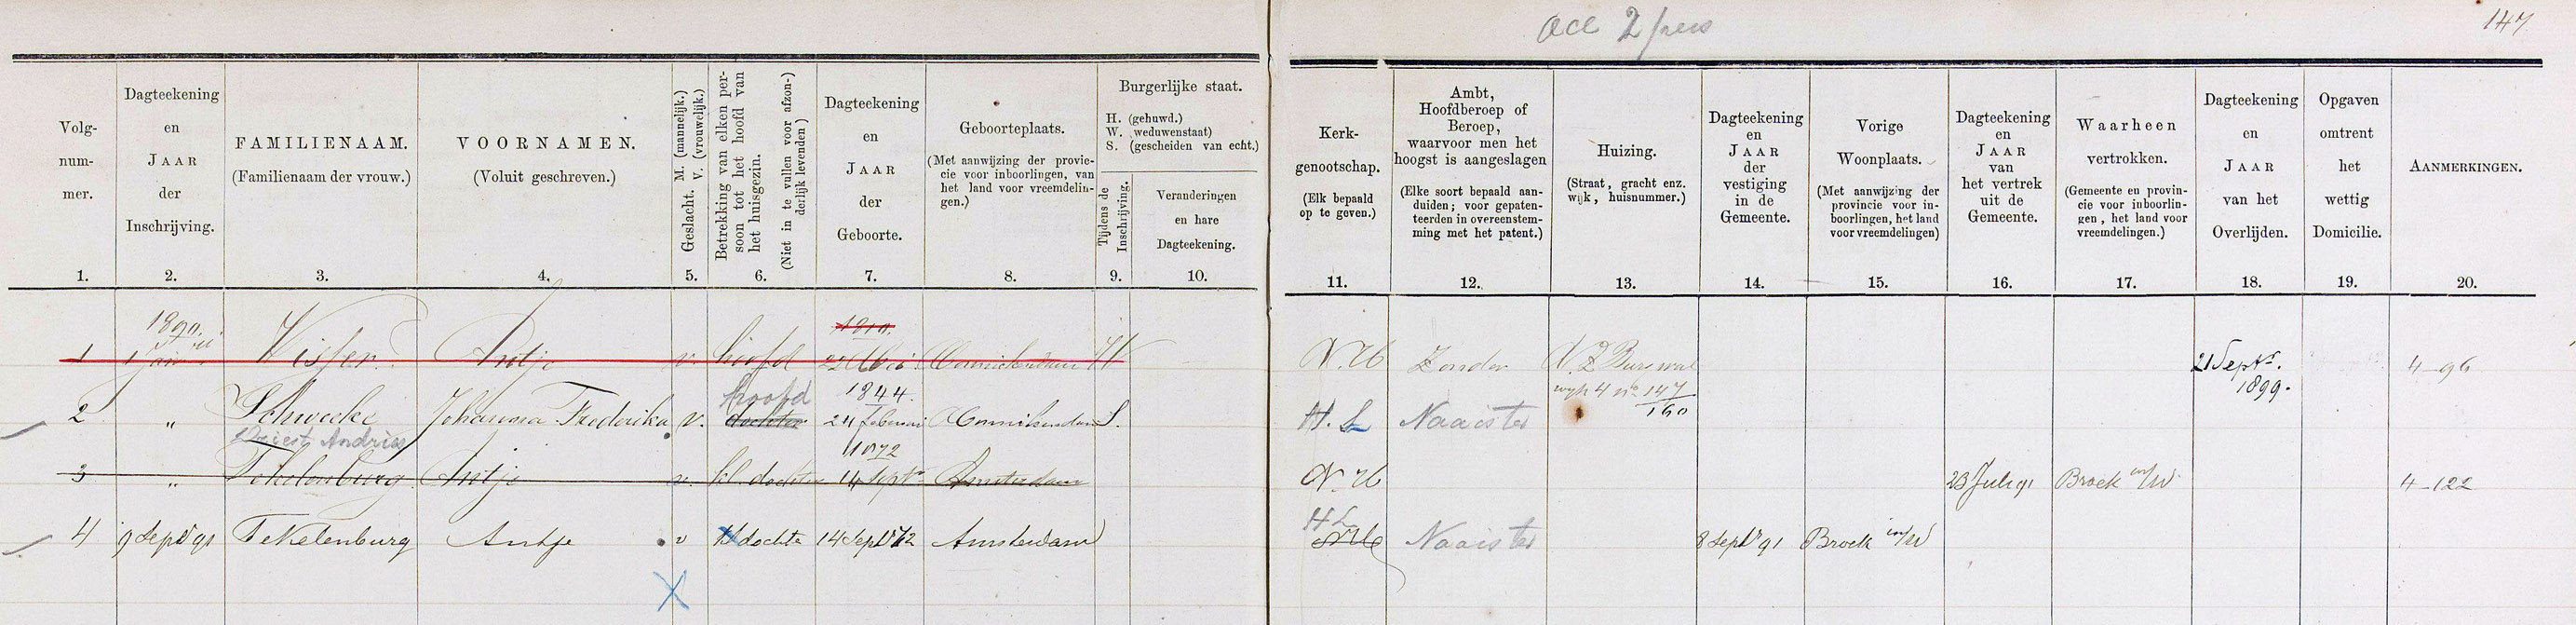 acc 2 pers
147
Volg-
num-
mer.
1.
Dagteekening
en
JAAR
der
Inschrijving.
2.
FAMILIENAAM.
(Familienaam der vrouw.)
3.
VOORNAMEN.
(Voluit geschreven.)
4.
Geslacht. M. (mannelijk.)
V. (vrouwelijk.)
5.
Betrekking van elken per-
soon tot het hoofd van
het huisgezin.
(Niet in te vullen voor afzon-
derlijk levenden)
6.
Dagteekening
en
JAAR
der
Geboorte.
7.
Geboorteplaats.
(Met aanwijzing der provin-
cie voor inboorlingen, van
het land voor vreemdelin-
gen.)
8.
Burgerlijke staat.
H. (gehuwd.)
W. (weduwenstaat)
S. (gescheiden van echt.)
Tijdens de
Inschrijving.
9.
Veranderingen
en hare
Dagteekening.
10.
Kerk-
genootschap.
(Elk bepaald
op te geven.)
11.
Ambt,
Hoofdberoep of
Beroep,
waarvoor men het
hoogst is aangeslagen
(Elke soort bepaald aan-
duiden; voor gepaten-
teerden in overeenstem-
ming met het patent.)
12.
Huizing.
(Straat, gracht enz.
wijk, huisnummer.)
13.
Dagteekening
en
JAAR
der
vestiging
in de
Gemeente.
14.
Vorige
Woonplaats.
(Met aanwijzing der
provincie voor in-
boorlingen, het land
voor vreemdelingen)
15.
Dagteekening
en
JAAR
van
het vertrek
uit de
Gemeente.
16.
Waarheen
vertrokken.
(Gemeente en provin-
cie voor inboorlin-
gen, het land voor
vreemdelingen.)
17.
Dagteekening
en
JAAR
van het
Overlijden.
18.
Opgaven
omtrent
het
wettig
Domicilie.
19.
AANMERKINGEN.
20.
1890. 1810.
1 1 Jan Visser Antje v. hoofd 22 Monnickendam W N.H Zonder N.Z. Burgwal 21 Septr. 4-96
hoofd 1844. wijk 4 no 147 1899.
160
2 " Schwecke Johanna Frederika v. dochter 24 Februari Monnikendam S. H.L Naaister
Driest Andries 1872
3 " Tekelenburg Antje v. kl. dochter 14 Septr Amsterdam N.H 23 Juli 91 Broek in/W 4-122
H L
4 9 Septr 91 Tekelenburg Antje v kl dochte 14 Septr 72 Amsterdam NH Naaister 8 Septr 91 Broek in/W
X